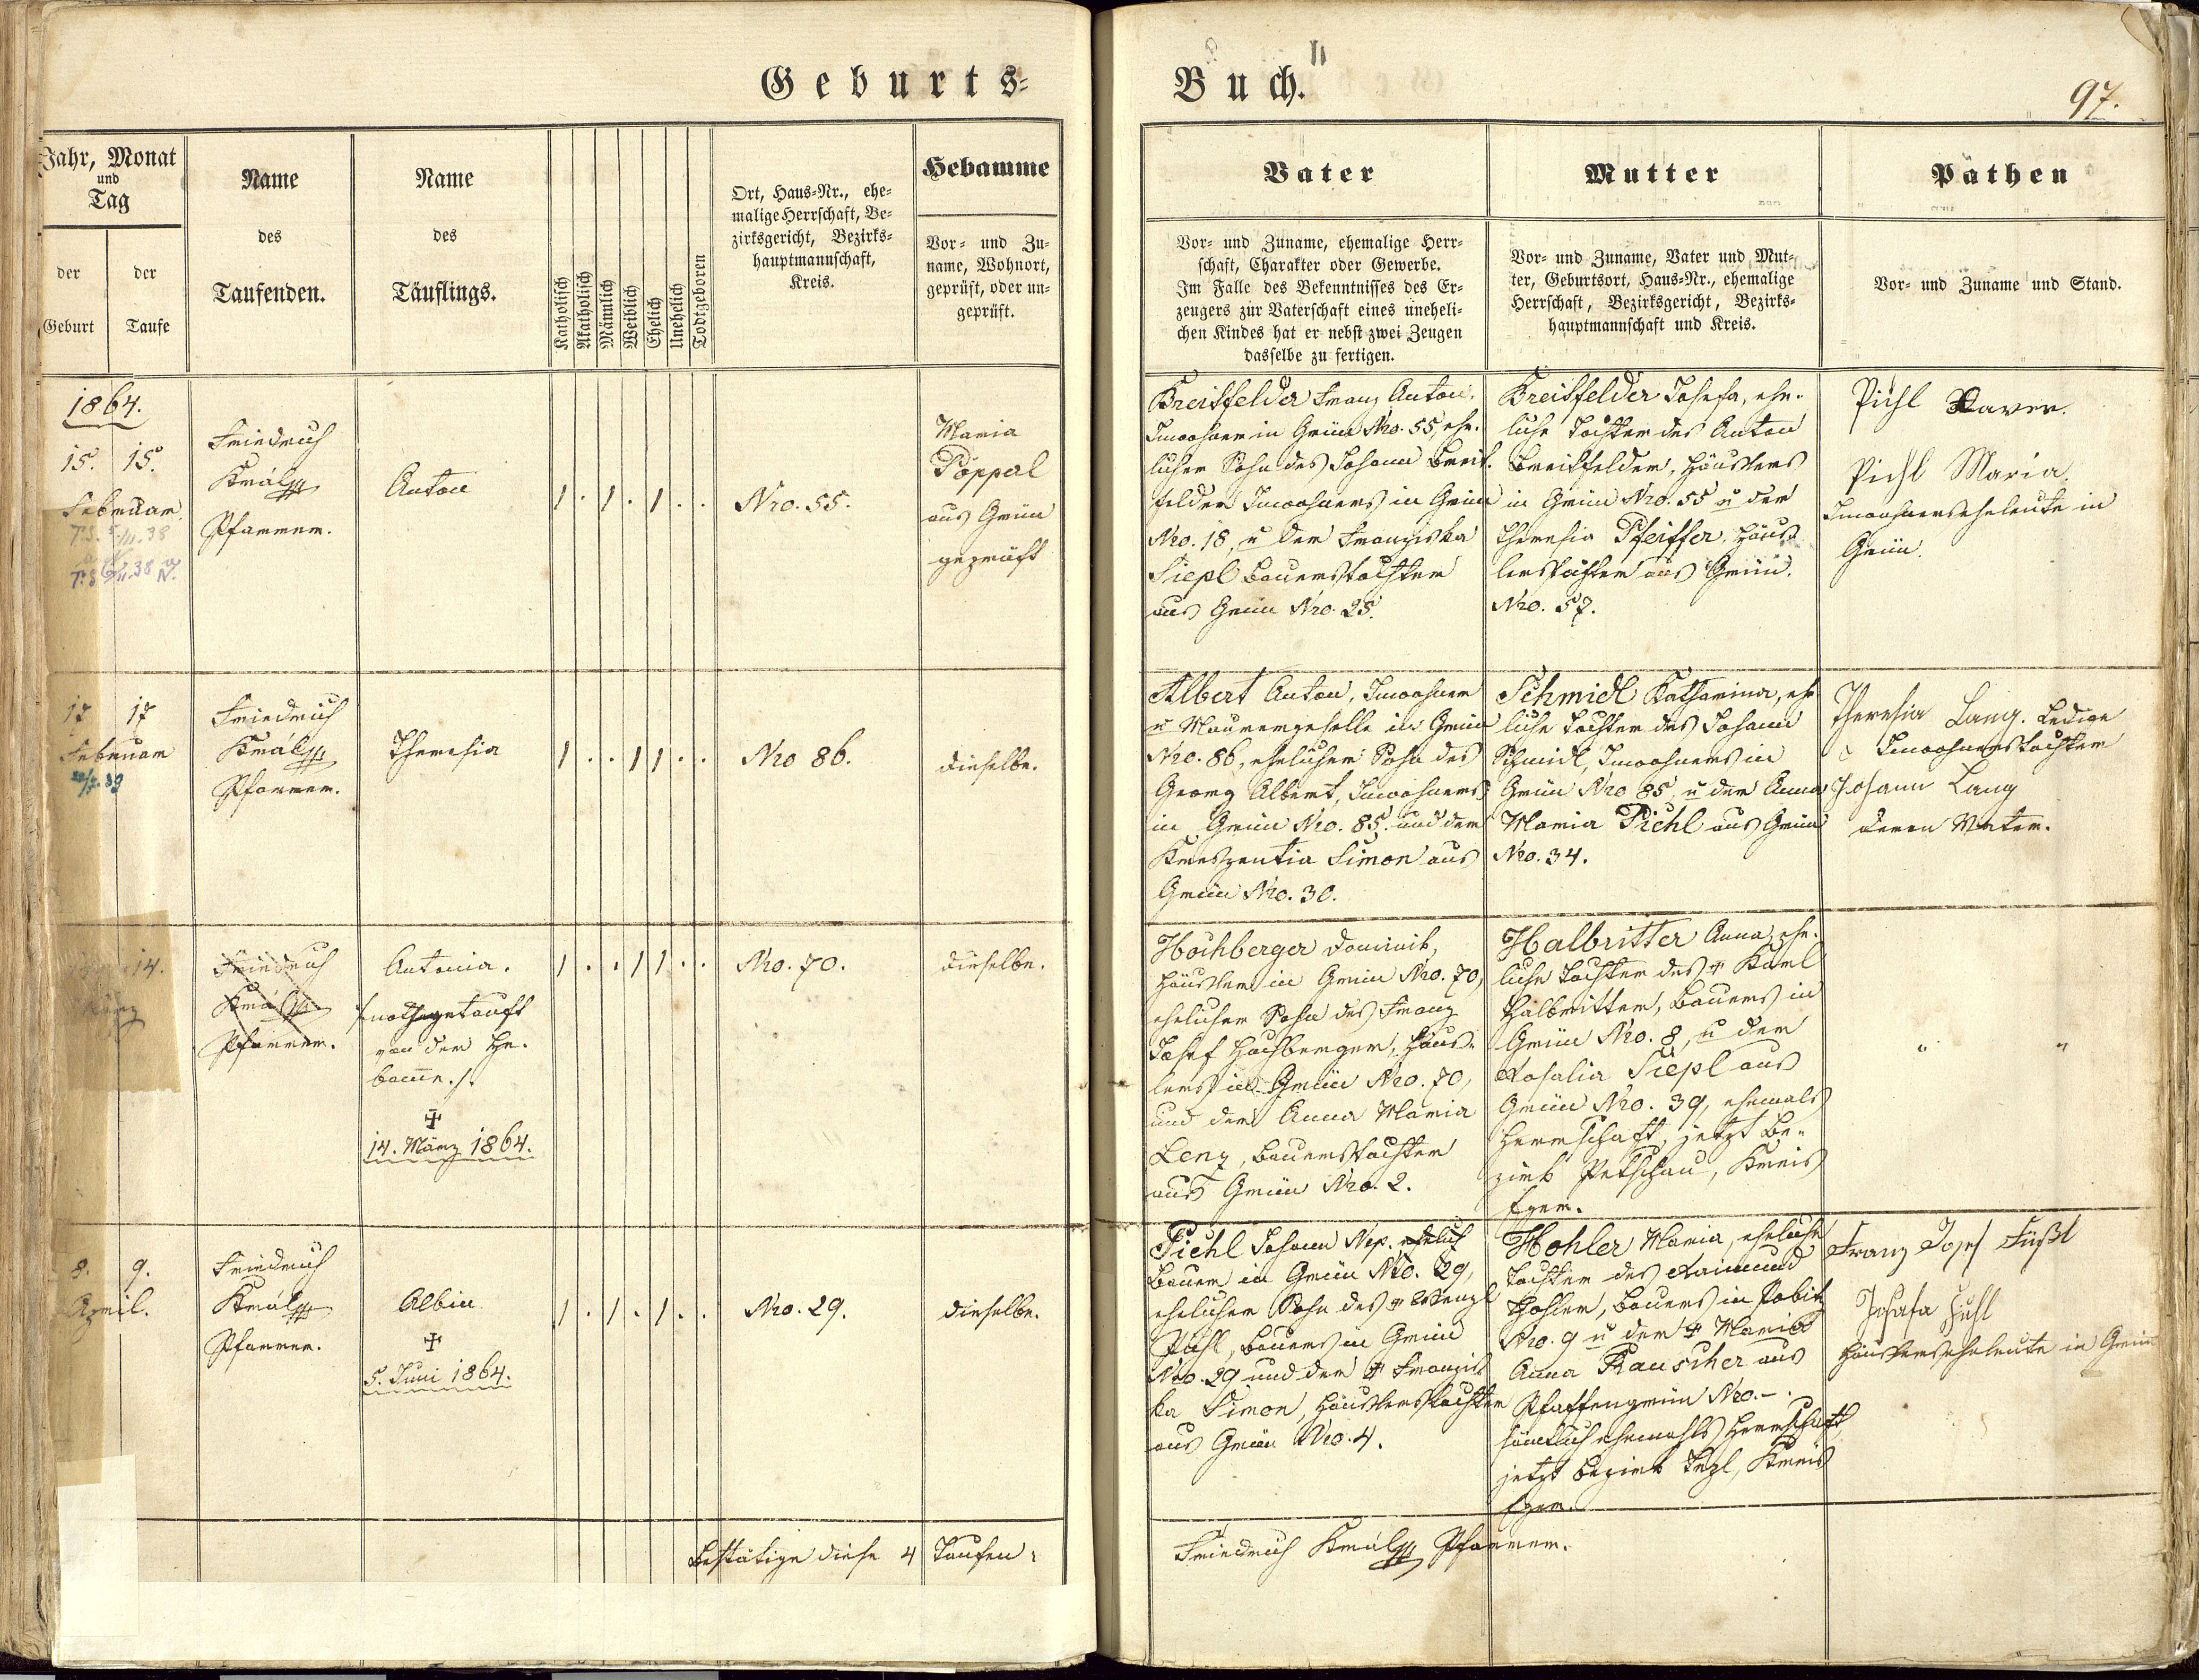 Geburts-
Buch.
97.
Jahr, Monat
und
Tag
der
Geburt
der
Taufe
Name
des
Taufenden.
Name
des
Täuflings.
Katholisch
Akatholisch
Männlich
Weiblich
Ehelich
Unehelich
Todtgeboren
Ort, Haus-Nr., ehe-
malige Herrschaft, Be-
zirksgericht, Bezirks-
hauptmannschaft,
Kreis.
Hebamme
Vor- und Zu-
name, Wohnort,
geprüft, oder un-
geprüft.
Vater
Vor- und Zuname, ehemalige Herr-
schaft, Charakter oder Gewerbe.
Im Falle des Bekenntnisses des Er-
zeugers zur Vaterschaft eines uneheli-
chen Kindes hat er nebst zwei Zeugen
dasselbe zu fertigen.
Mutter
Vor- und Zuname, Vater und Mut-
ter, Geburtsort, Haus-Nr., ehemalige
Herrschaft, Bezirksgericht, Bezirks-
hauptmannschaft und Kreis.
Pathen
Vor- und Zuname und Stand.
1864.
15. 15.
Februar
Friedrich
Král
Pfarrer.
Anton
1 . 1 . 1 . .
Nro. 55.
Maria
Poppal
aus Grün
geprüft
Breitfelder Franz Anton,
Inwohner in Grün Nro. 55, ehe-
licher Sohn des Johann Breit-
felder Inwohners in Grün
Nro. 18, u der Franziska
Siepl Bauerstochter
aus Grün Nro. 25.
Breitfelder Josefa, ehe-
liche Tochter des Anton
Breitfelder, Häuslers
in Grün Nro. 55 u der
Theresia Pfeiffer, Häus-
lerstochter aus Grün.
Nro. 57.
Pichl Xaver.
Pichl Maria.
Inwohnerseheleute in
Grün.
17 17
Februar
Friedrich
Král
Pfarrer.
Theresia
1 . . 1 1 . .
Nro 86.
dieselbe.
Albert Anton, Inwohner
u Maurergeselle in Grün
Nro. 86, ehelicher Sohn des
Georg Albert, Inwohners
in Grün Nro. 85. und der
Kreszentia Simon aus
Grün Nro. 30.
Schmidl Katharina, ehe
liche Tochter des Johann
Schmidl, Inwohners in
Grün Nro 85 u der Anna
Maria Pichl aus Grün
Nro. 34.
Theresia Lang. Ledige
Inwohnerstochter
Johann Lang
deren Vater.
14.
März
Friedrich
Král
Pfarrer.
Antonia.
/nothgetauft
von der He-
bamme./.
✠
14. März 1864.
1 . . 1 1 . .
Nro. 70.
dieselbe.
Hochberger Dominik,
Häusler in Grün Nro. 70,
ehelicher Sohn des Franz
Josef Hochberger, Häus-
lers in Grün Nro. 70,
und der Anna Maria
Lenz, Bauerstochter
aus Grün Nro. 2.
Halbritter Anna, ehe-
liche Tochter des ✠ Karl
Halbritter, Bauers in
Grün Nro. 8, u der
Rosalia Siepl aus
Grün Nro. 39, ehemals
Herrschaft, jetzt Be-
zirk Petschau, Kreis
Eger.
" "
8. 9.
April.
Friedrich
Král
Pfarrer.
Albin
✠
5. Juni 1864.
1 . 1 . 1 . .
Nro. 29.
dieselbe.
Pichl Johann Nep. ehelich
Bauer in Grün Nro. 29,
ehelicher Sohn des ✠ Wenzl
Pichl, Bauers in Grün
Nro. 29 und der ✠ Franzis
ka Simon, Häuslerstochter
aus Grün Nro. 4.
Hohler Maria, eheliche
Tochter des Raimund
Hohler, Bauers in Pobitz
Nro. 9 u der ✠ Maria
Anna Rauscher aus
Pfaffengrün Nro. -.
sämtlich ehemahls Herrschaft,
jetzt Bezirk Tepl, Kreis
Eger.
Franz Josef Füßl
Josefa Füßl
Häuslerseheleute in Grün
Bestätige diese 4 Taufen:
Friedrich Král Pfarrer.